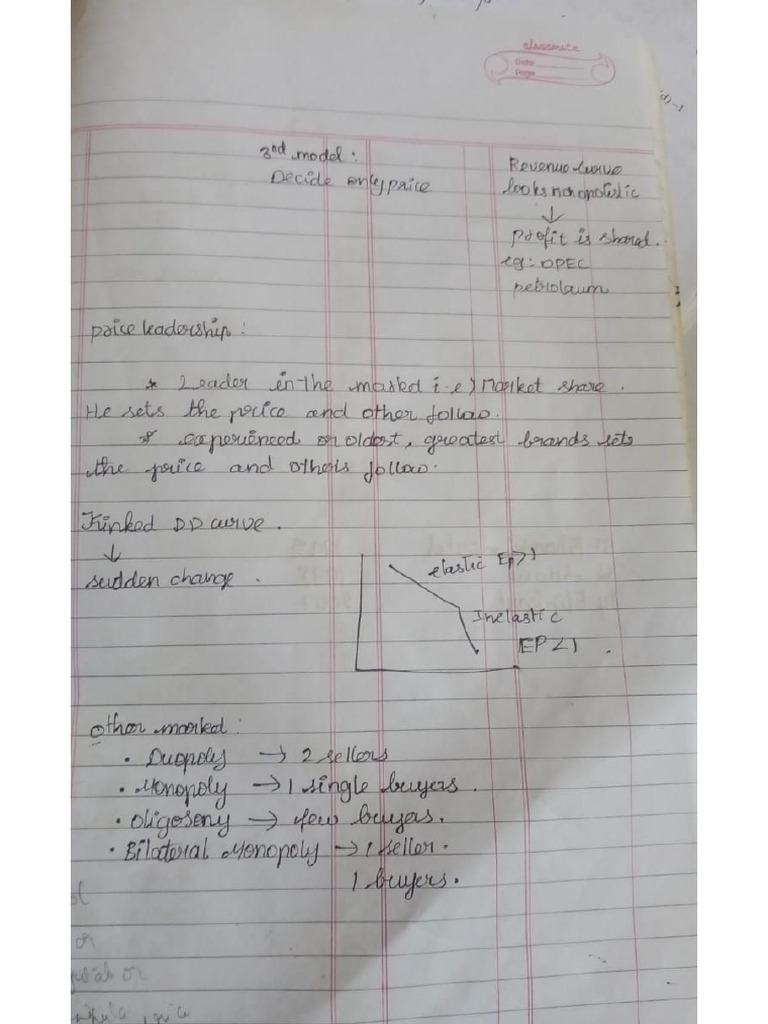 classmate
Date
Page
3rd model:
Decide only price
Revenue curve
looks monopolistic
↓
profit is shared.
eg: OPEC
petrolaum
price leadership:
* Leader in the marked i.e) Market share.
He sets the price and other follow.
* experienced or oldest, greatest brands sets
the price and others follow.
Kinked DD curve.
↓
sudden change.
elastic Ep>1
Inelastic
EP<1.
Other marked:
• Duopoly → 2 sellers
• Monopoly → 1 single buyers.
• Oligosony → few buyers.
• Bilateral Monopoly → 1 seller.
1 buyers.
or